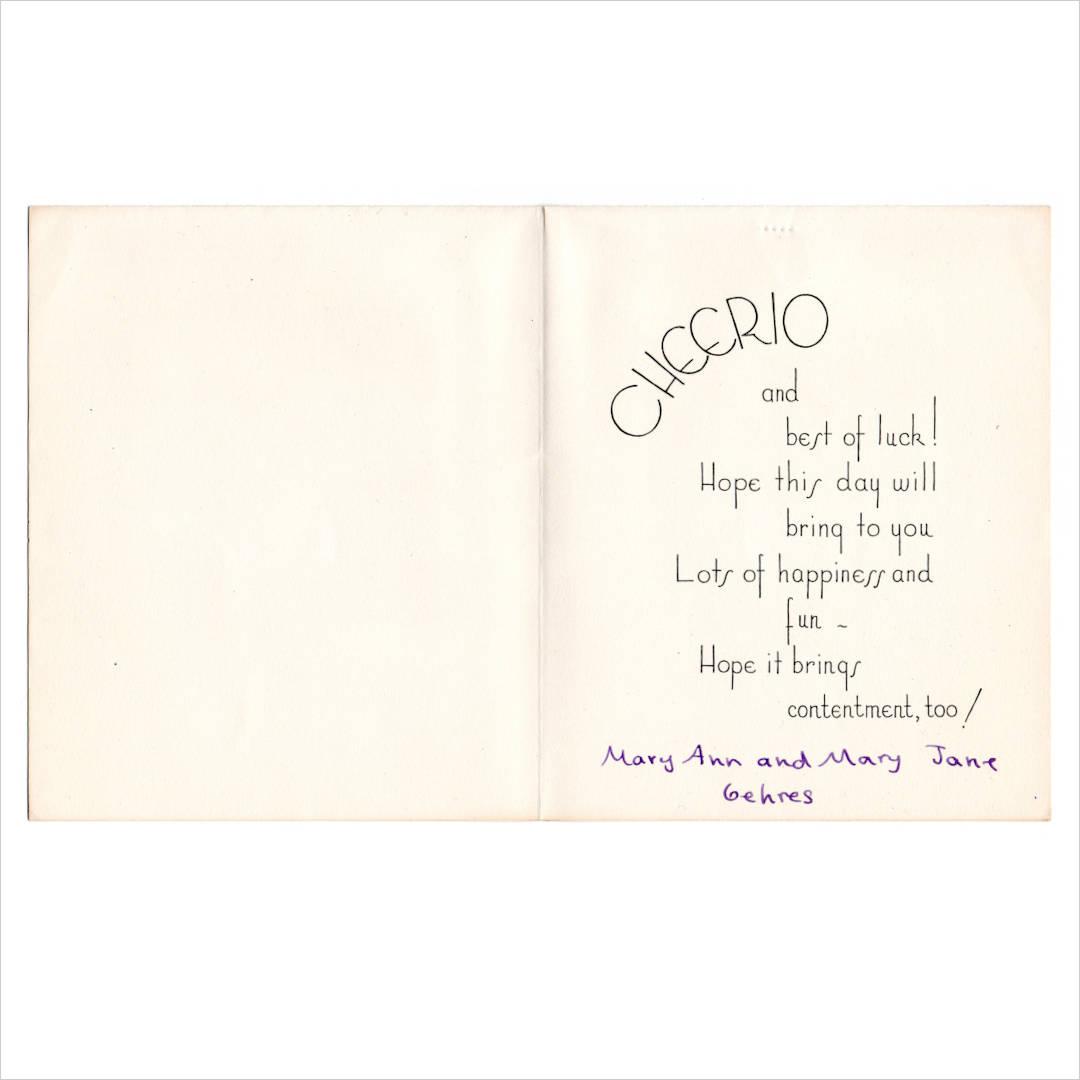 CHEERIO
and
best of luck!
Hope this day will
bring to you
Lots of happiness and
fun ~
Hope it brings
contentment, too!
Mary Ann and Mary Jane
Gehres